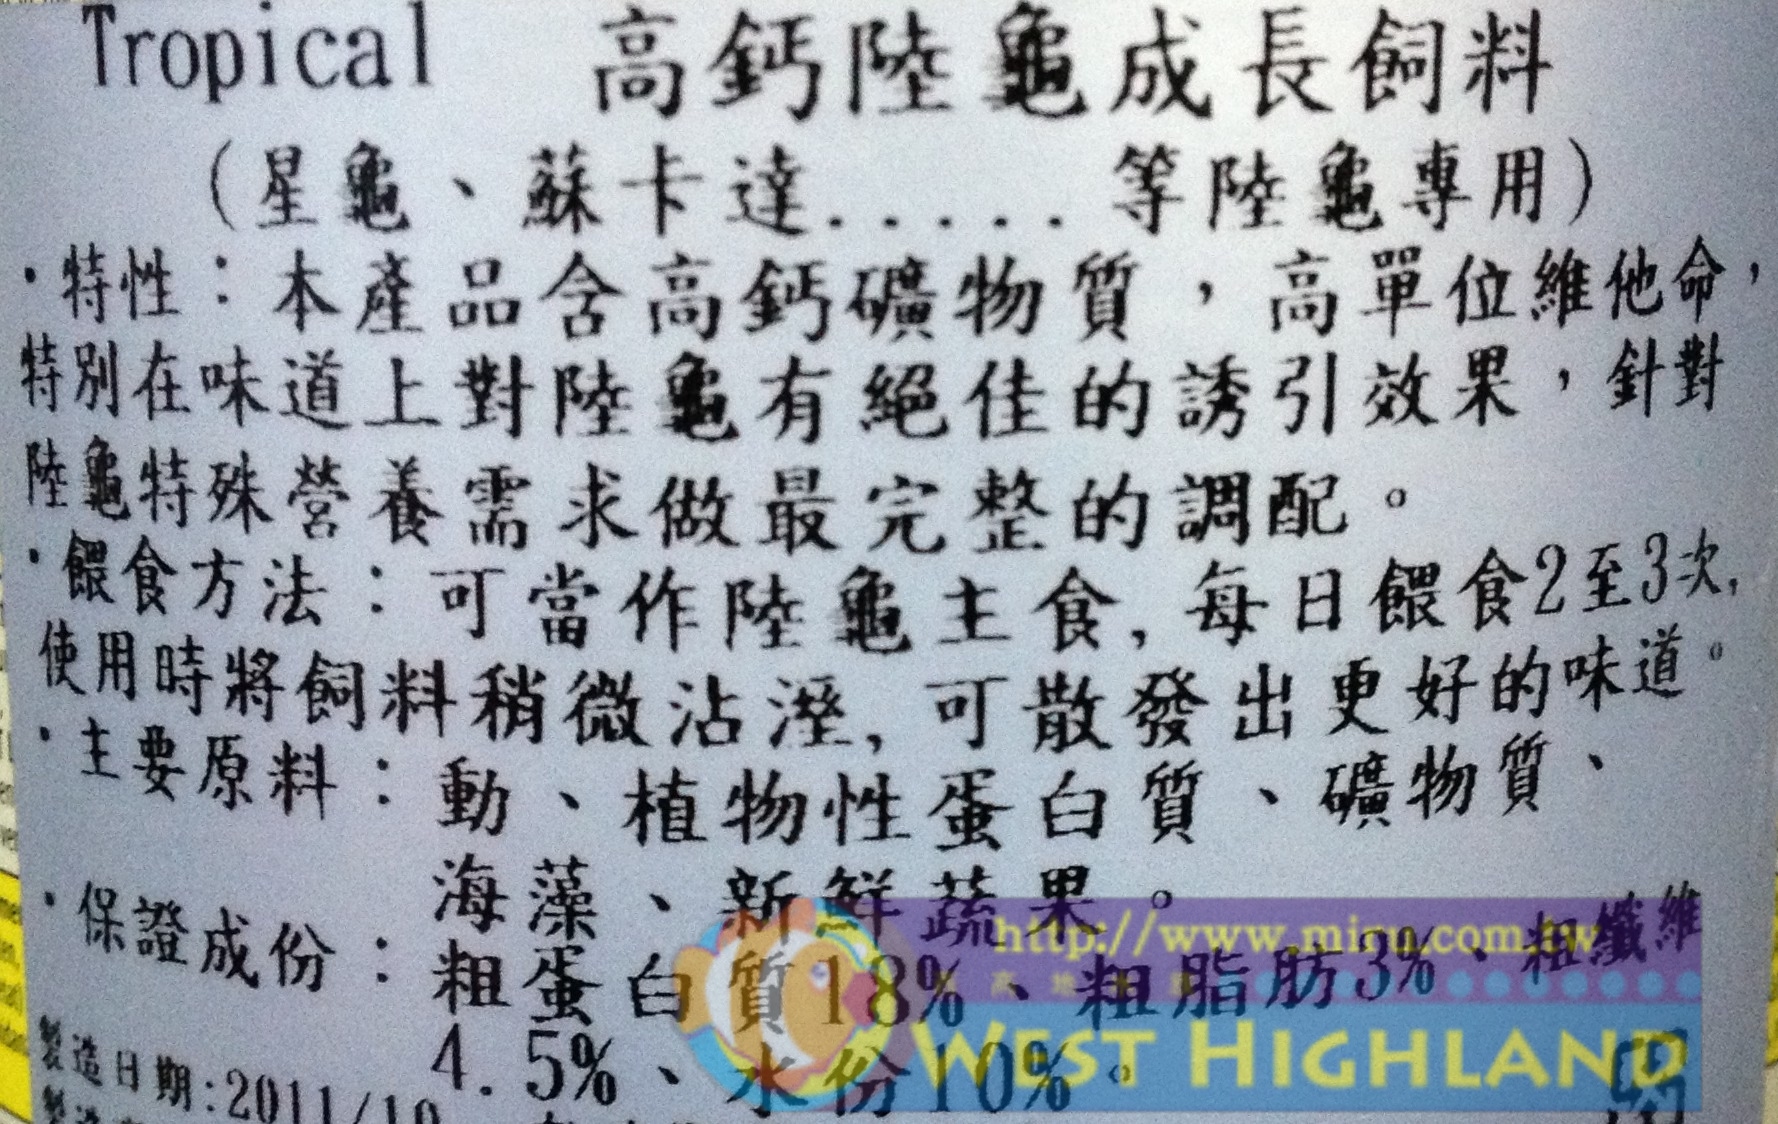 Tropical 高鈣陸龜成長飼料
(星龜、蘇卡達.....等陸龜專用)
·特性:本產品含高鈣礦物質,高單位維他命,
特別在味道上對陸龜有絕佳的誘引效果,針對
陸龜特殊營養需求做最完整的調配。
·餵食方法:可當作陸龜主食,每日餵食2至3次,
使用時將飼料稍微沾溼,可散發出更好的味道。
·主要原料:動、植物性蛋白質、礦物質、
海藻、新鮮蔬果。
·保證成份:粗蛋白質18%、粗脂肪3%、粗纖維
4.5%、水份10%。
製造日期:2011/10
WEST HIGHLAND